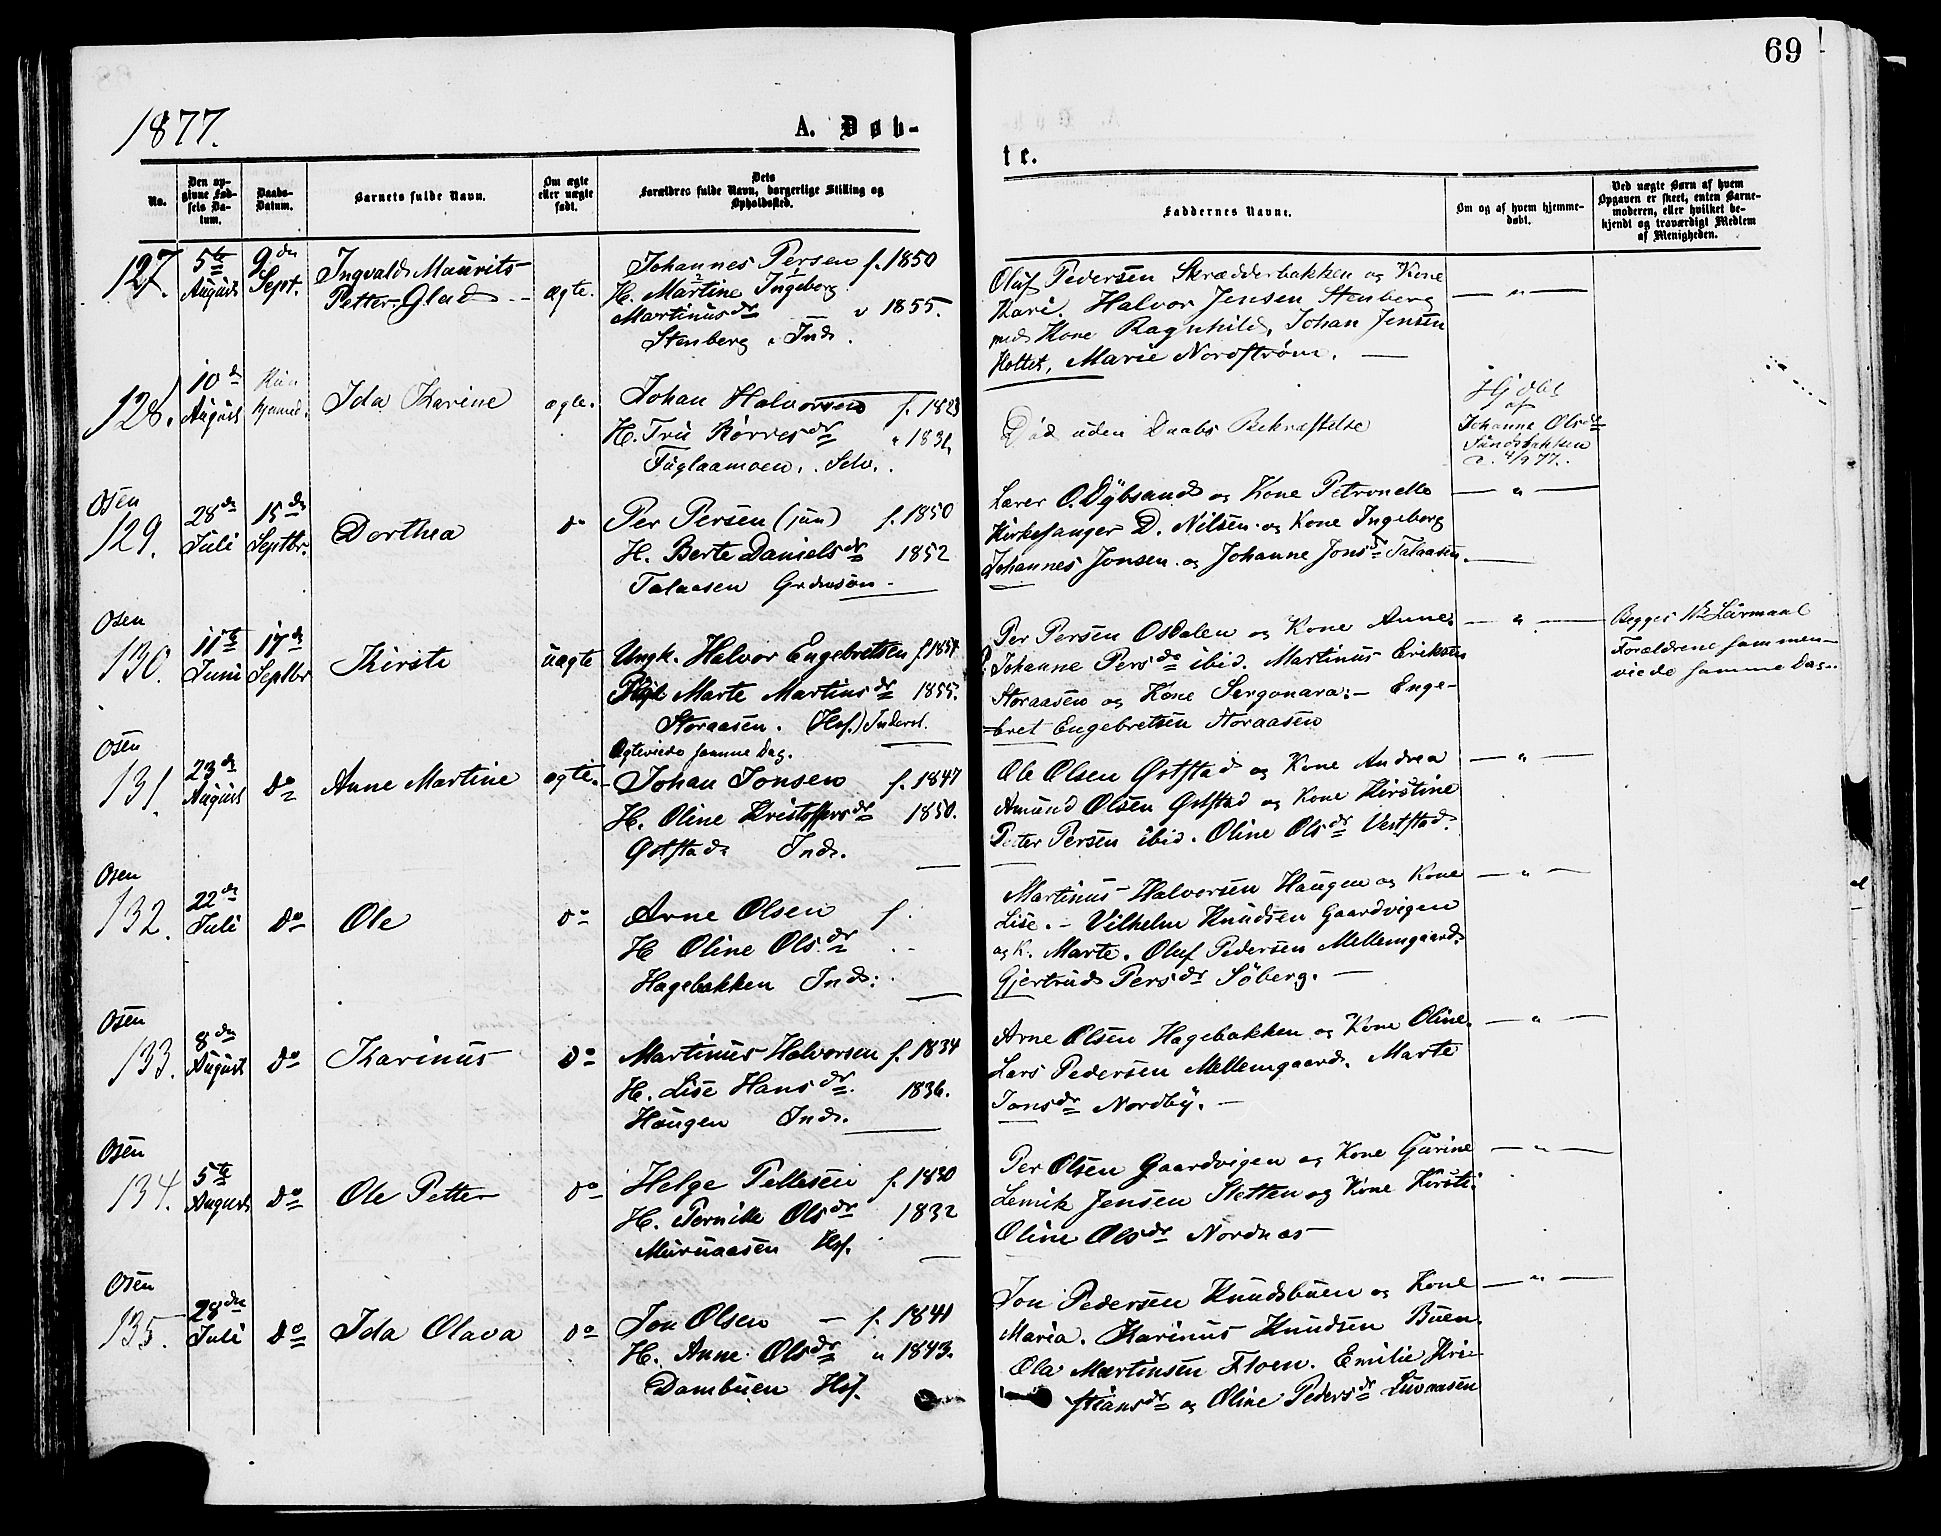 69
1877.
A. Døb-
te.
No.
Den op-
givne Fød-
sels Da-
tum.
Daabs-
Datum.
Barnets fulde Navn.
Om ægte
eller uægte
født.
Dets
Forældres fulde Navn, borgerlige Stilling og
Opholdssted.
Faddernes Navne.
Om og af hvem hjemme-
døbt.
Ved uægte Børn af hvem
Opgaven er skeet, enten Barne-
moderen, eller hvilket be-
kjendt og troværdigt Medlem
af Menigheden.
127.
5te
August
9de
Sept.
Ingvald Maurits
Petter Glad
ægte.
Johannes Persen f. 1850
H. Martine Ingeborg
Martinusdr " 1855.
Stenberg Ind.
Oluf Pedersen Skrædderbakken og Kone
Kari. Halvor Jensen Stenberg
med Kone Ragnhild, Johan Jensen
Marie Nordstrøm. —
— " —
128.
10de
August
hjemmed.
Ida Karine
ægte.
Johan Halvorsen f. 1823
H. Tru dr " 183
Fuglaamoen. Selv.
Død uden Daabs Bekræftelse
Hjdbt
af
Johanne Olsdr
4/9 77.
Osen
129.
28de
Juli
15de
Septbr.
Dorthea
do
Per Persen (jun) f. 1850
H. Berte Danielsdr 1852
Talaasen
Lærer O. Dybsand og Kone Petronelle
Kirkesanger D. Nilsen og Kone Ingeborg
Johannes Jonsen og Johanne Jonsdr Talaasen.
— " —
Osen
130.
11te
Juni
17de
Septbr
Kirsti
uægte
Ungk. Halvor Engebretsen f. 185
Pige Marte Martinsdr 1855.
Storaasen. (Hsf.) Inderst.
Per Persen Osdalen og Kone Anne,
Johanne Persdr ibid. Martinus Eriksen
Storaasen og Kone — Enge-
bret Engebretsen Storaasen
— " —
Begges No Leirmaal
Forældrene sammen-
viede samme Dag.
Osen
131.
23de
August
do
Anne Martine
Ægteviede samme Dag.
ægte.
Johan Jonsen f. 1847
H. Oline Kristoffersdr 1850.
Øststad Ind.
Ole Olsen Øststad og Kone Andrea
Amund Olsen Øststad og Kone Kirstine
Petter Persen ibid. Oline Olsdr Veststad.
— " —
Osen
132.
22de
Juli
do
Ole
do
Arne Olsen f.
H Oline Olsdr
Hagebakken Ind.
Martinus Halvorsen Haugen og Kone
Lise. – Vilhelm Knudsen Gaardvigen
og K. Marte. Oluf Pedersen Mellemgaard.
Gjertrud Persdr Søberg. —
— " —
Osen
133.
8de
August
do
Karinus
do
Martinus Halvorsen f. 1834
H. Lise Hansdr. 1836.
Haugen Ind.
Arne Olsen Hagebakken og Kone Oline.
Lars Pedersen Mellemgaard. Marte
Jonsdr Nordby. —
— " —
Osen
134.
5te
August
do
Ole Petter
do
Helge Pettersen f. 1830
H. Pernille Olsdr 1832
Muruaasen Hsf.
Per Olsen Gaardvigen og Kone Gurine
Lemik Jensen Sletten og Kone Kirsti
Oline Olsdr Nordnæs
— " —
Osen
135.
28de
Juli
do
Ida Olava
do
Jon Olsen — f. 1841
H. Anne Olsdr " 1843.
Dambuen Hsf.
Jon Pedersen Knudsbuen og Kone
Maria. Karinus Knudsen Buen.
Ola Martinsen Floen. Emilie Kri-
stiansdr og Oline Pedersdr
— " —